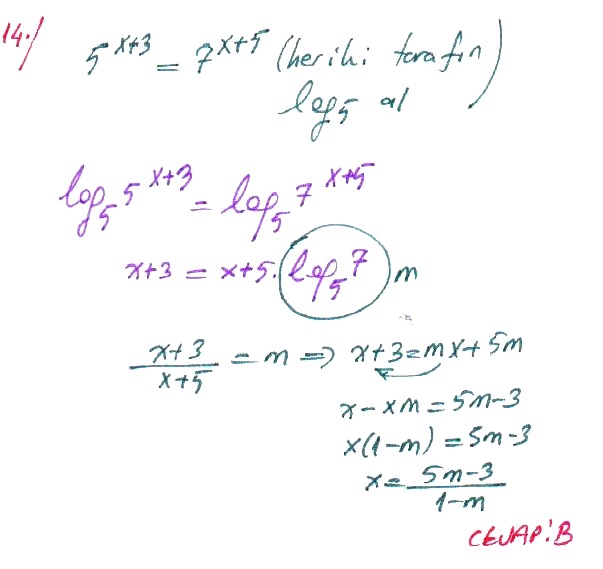 14·/ 5^{x+3} = 7^{x+5} (her iki tarafın
log₅ al)
log₅ 5^{x+3} = log₅ 7^{x+5}
x+3 = x+5. log₅ 7 m
\frac{x+3}{x+5} = m ⇒ x+3=mx+5m
x-xm=5m-3
x(1-m) = 5m-3
x= \frac{5m-3}{1-m}
CEVAP:B